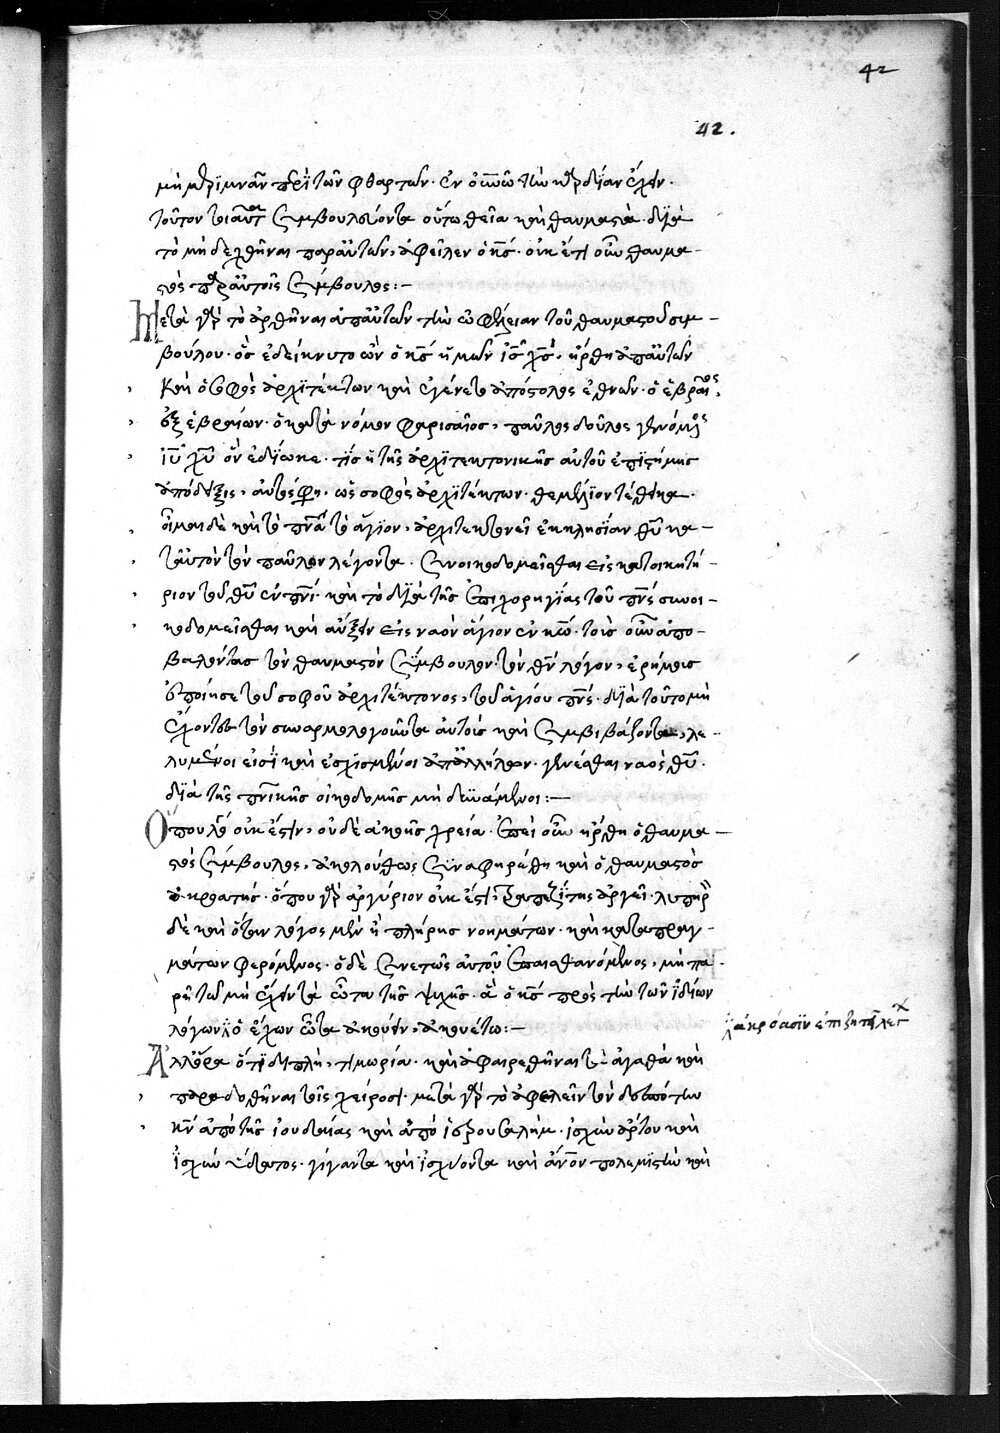 42
42.
μὴ μεριμνᾶν περὶ τῶν φθαρτῶν· ἐν οὐνῶ τὴν καρδίαν ἔχειν·
τοῦτον τοιαῦτα συμβουλεύοντα οὕτω θεῖα καὶ θαυμαστὰ· διὰ
τὸ μὴ δεχθῆναι παρ αὐτῶν, ἀφεῖλεν ὁ κς̄· οὐκ ἔτι οὖν θαυμα-
στὸς παρ αὐτοῖς σύμβουλος:-
Μετὰ γὰρ τὸ ἀρθῆναι ἀπ αὐτῶν τὴν ὠφέλειαν τοῦ θαυμαστοῦ συμ-
βούλου· ὃς ἐδείκνυτο ὢν ὁ κς̄ ἡμῶν ις̄ χς̄· ἤρθη ἀπ αὐτῶν
καὶ ὁ σοφὸς ἀρχιτέκτων καὶ ἐγένετο ἀπόστολος ἐθνῶν· ὁ ἑβραῖος
ἐξ ἑβραίων· ὁ κατὰ νόμον φαρισαῖος, παῦλος δοῦλος γενόμενος
ιῡ χῡ ὃν ἐδίωκε· τίς ἡ τῆς ἀρχιτεκτονικῆς αὐτοῦ ἐπιστήμης
ἀπόδειξις, αὐτός φη· ὡς σοφὸς ἀρχιτέκτων· θεμέλιον τέθεικα·
οἶμαι δὲ καὶ τὸ πνᾱ τὸ ἅγιον, ἀρχιτεκτονεῖ ἐκκλησίαν θῡ κα-
τ αὐτὸν τὸν παῦλον λέγοντα· συνοικοδομεῖσθαι εἰς κατοικητή-
ριον τοῦ θῡ ἐν πνῑ· καὶ τὸ διὰ τῆς ἐπιχορηγίας τοῦ πνς̄ συνοι-
κοδομεῖσθαι καὶ αὔξειν εἰς ναὸν ἅγιον ἐν κω̄· τοὺς οὖν ἀπο-
βαλόντας τὸν θαυμαστὸν σύμβουλον· τὸν θν̄ λόγον, ἐρήμους
ἐποίησε τοῦ σοφοῦ ἀρχιτέκτονος, τοῦ ἁγίου πνς̄· διὰ τοῦτο μὴ
ἔχοντες τὸν συναρμολογοῦντα αὐτοὺς καὶ συμβιβάζοντα, λε-
λυμένοι εἰσὶ καὶ ἐσχισμένοι ἀπ ἀλλήλων· γενέσθαι ναὸς θῡ·
διὰ τῆς πνικῆς οἰκοδομῆς μὴ δυνάμενοι:-
Ὅπου λόγος οὐκ ἔστιν, οὐδὲ ἀκοῆς χρεία· ἐπεὶ οὖν ἤρθη ὁ θαυμα-
στὸς σύμβουλος, ἀκολούθως συναφηρέθη καὶ ὁ θαυμαστὸς
ἀκροατής· ὅπου γὰρ ἀργύριον οὐκ ἔστι, τραπεζίτης ἀργεῖ· λυπηρὸν
δὲ καὶ ὅταν λόγος μὲν ᾖ πλήρης νοημάτων· καὶ κατὰ πραγ-
μάτων φερόμενος· ὁ δὲ συνετῶς αὐτοῦ ἐπαισθανόμενος, μὴ πα-
ρῇ τῶ μὴ ἔχειν τὰ ὦτα τῆς ψυχῆς· ἃ ὁ κς̄ πρὸς τὴν τῶν ἰδίων
λόγων ὁ ἔχων ὦτα ἀκούειν, ἀκουέτω:-
ἀκρόασιν ἐπιζητεῖ λέγ
Ἀλλ ὅρα ὅτι διπλῆ, τιμωρία· καὶ ἀφαιρεθῆναι τὰ ἀγαθὰ καὶ
παραδοθῆναι τοῖς χείροσι· μετὰ γὰρ τὸ ἀφελεῖν τὸν δεσπότην
κν̄ ἀπὸ τῆς ἰουδαίας καὶ ἀπὸ ἱερουσαλήμ· ἰσχὺν ἄρτου καὶ
ἰσχὺν ὕδατος· γίγαντα καὶ ἰσχύοντα καὶ ἄνον πολεμιστὴν καὶ